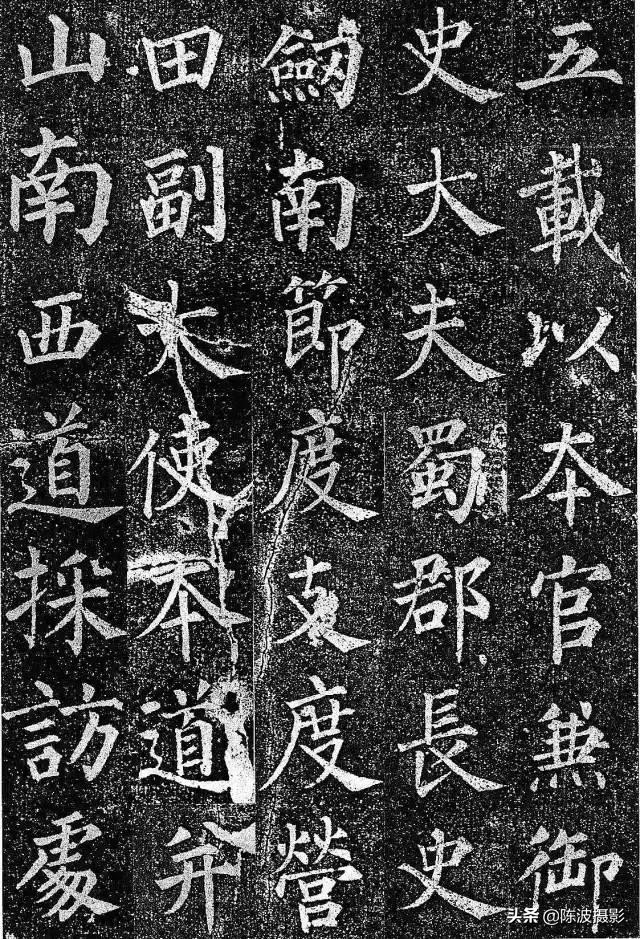 五載以本官兼御
史大夫蜀郡長史
劒南節度支度營
田副大使本道并
山南西道採訪處
头条 @陈波摄影